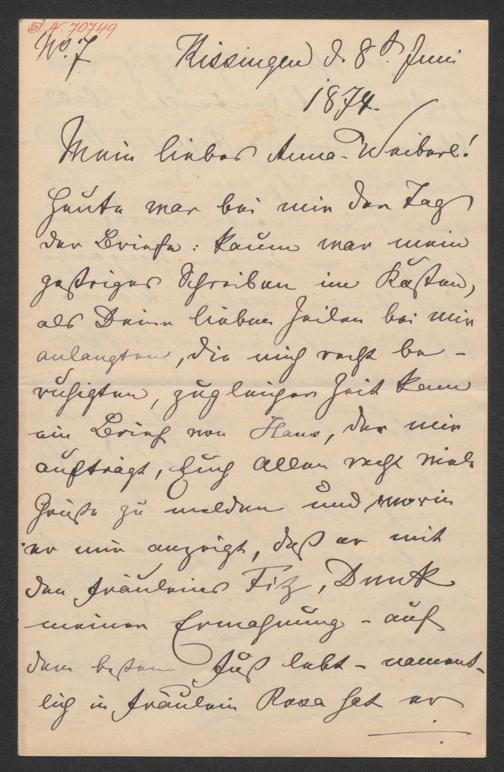 I. N. 70749
No. 7
Kissingen d. 8t. Juni
1874.
Mein liebes Anna-Weiberl!
Heute war bei mir der Tag
der Briefe: kaum war mein
gestriges Schreiben im Kasten,
als Deine lieben Zeilen bei mir
anlangten, die mich recht be-
ruhigten, zugleicher Zeit kam
ein Brief von Hans, der mir
aufträgt, Euch Allen recht viele
Grüße zu melden und worin
er mir anzeigt, daß er mit
den Fräuleins Fitz, Dank
meiner Ermahnung - auf
dem besten Fuß lebt - nament-
lich in Fräulein Rosa hat er